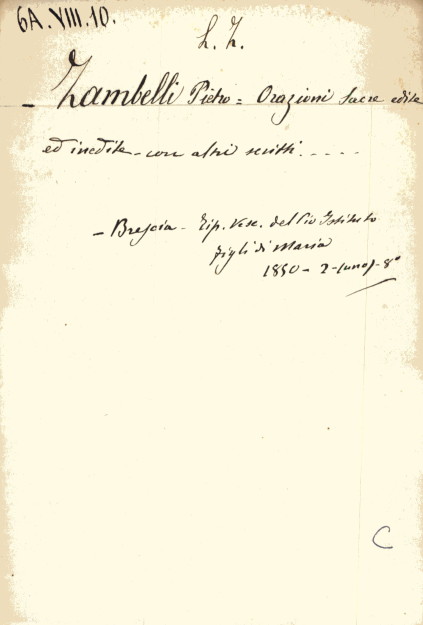 6A.VIII.10.
L. Z.
- Zambelli Pietro = Orazioni sacre edite
ed inedite - con altri scritti.....
- Brescia - Tip. Vesc. del Pio Istituto
Figli di Maria
1850 - 2 - (uno) - 8°
C